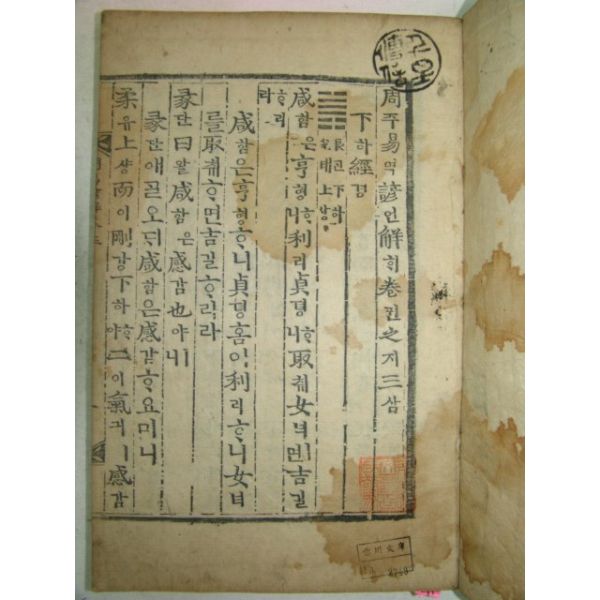 周쥬易역諺언解ᄒᆡ卷권之지三삼
下하經경
䷞ 艮간下하
兌태上샹
咸함은亨형ᄒᆞ니利리貞뎡ᄒᆞ니取ᄎᆔ女녀ㅣ면吉길
ᄒᆞ리라
咸함은亨형ᄒᆞ니貞뎡홈이利리ᄒᆞ니女녀
를取ᄎᆔᄒᆞ면吉길ᄒᆞ리라
彖단曰왈咸함은感감也야ㅣ니
彖단애ᄀᆞᆯ오ᄃᆡ咸함은感감ᄒᆞ요미니
柔유上샹而이剛강下하ᄒᆞ야二이氣긔ㅣ感감